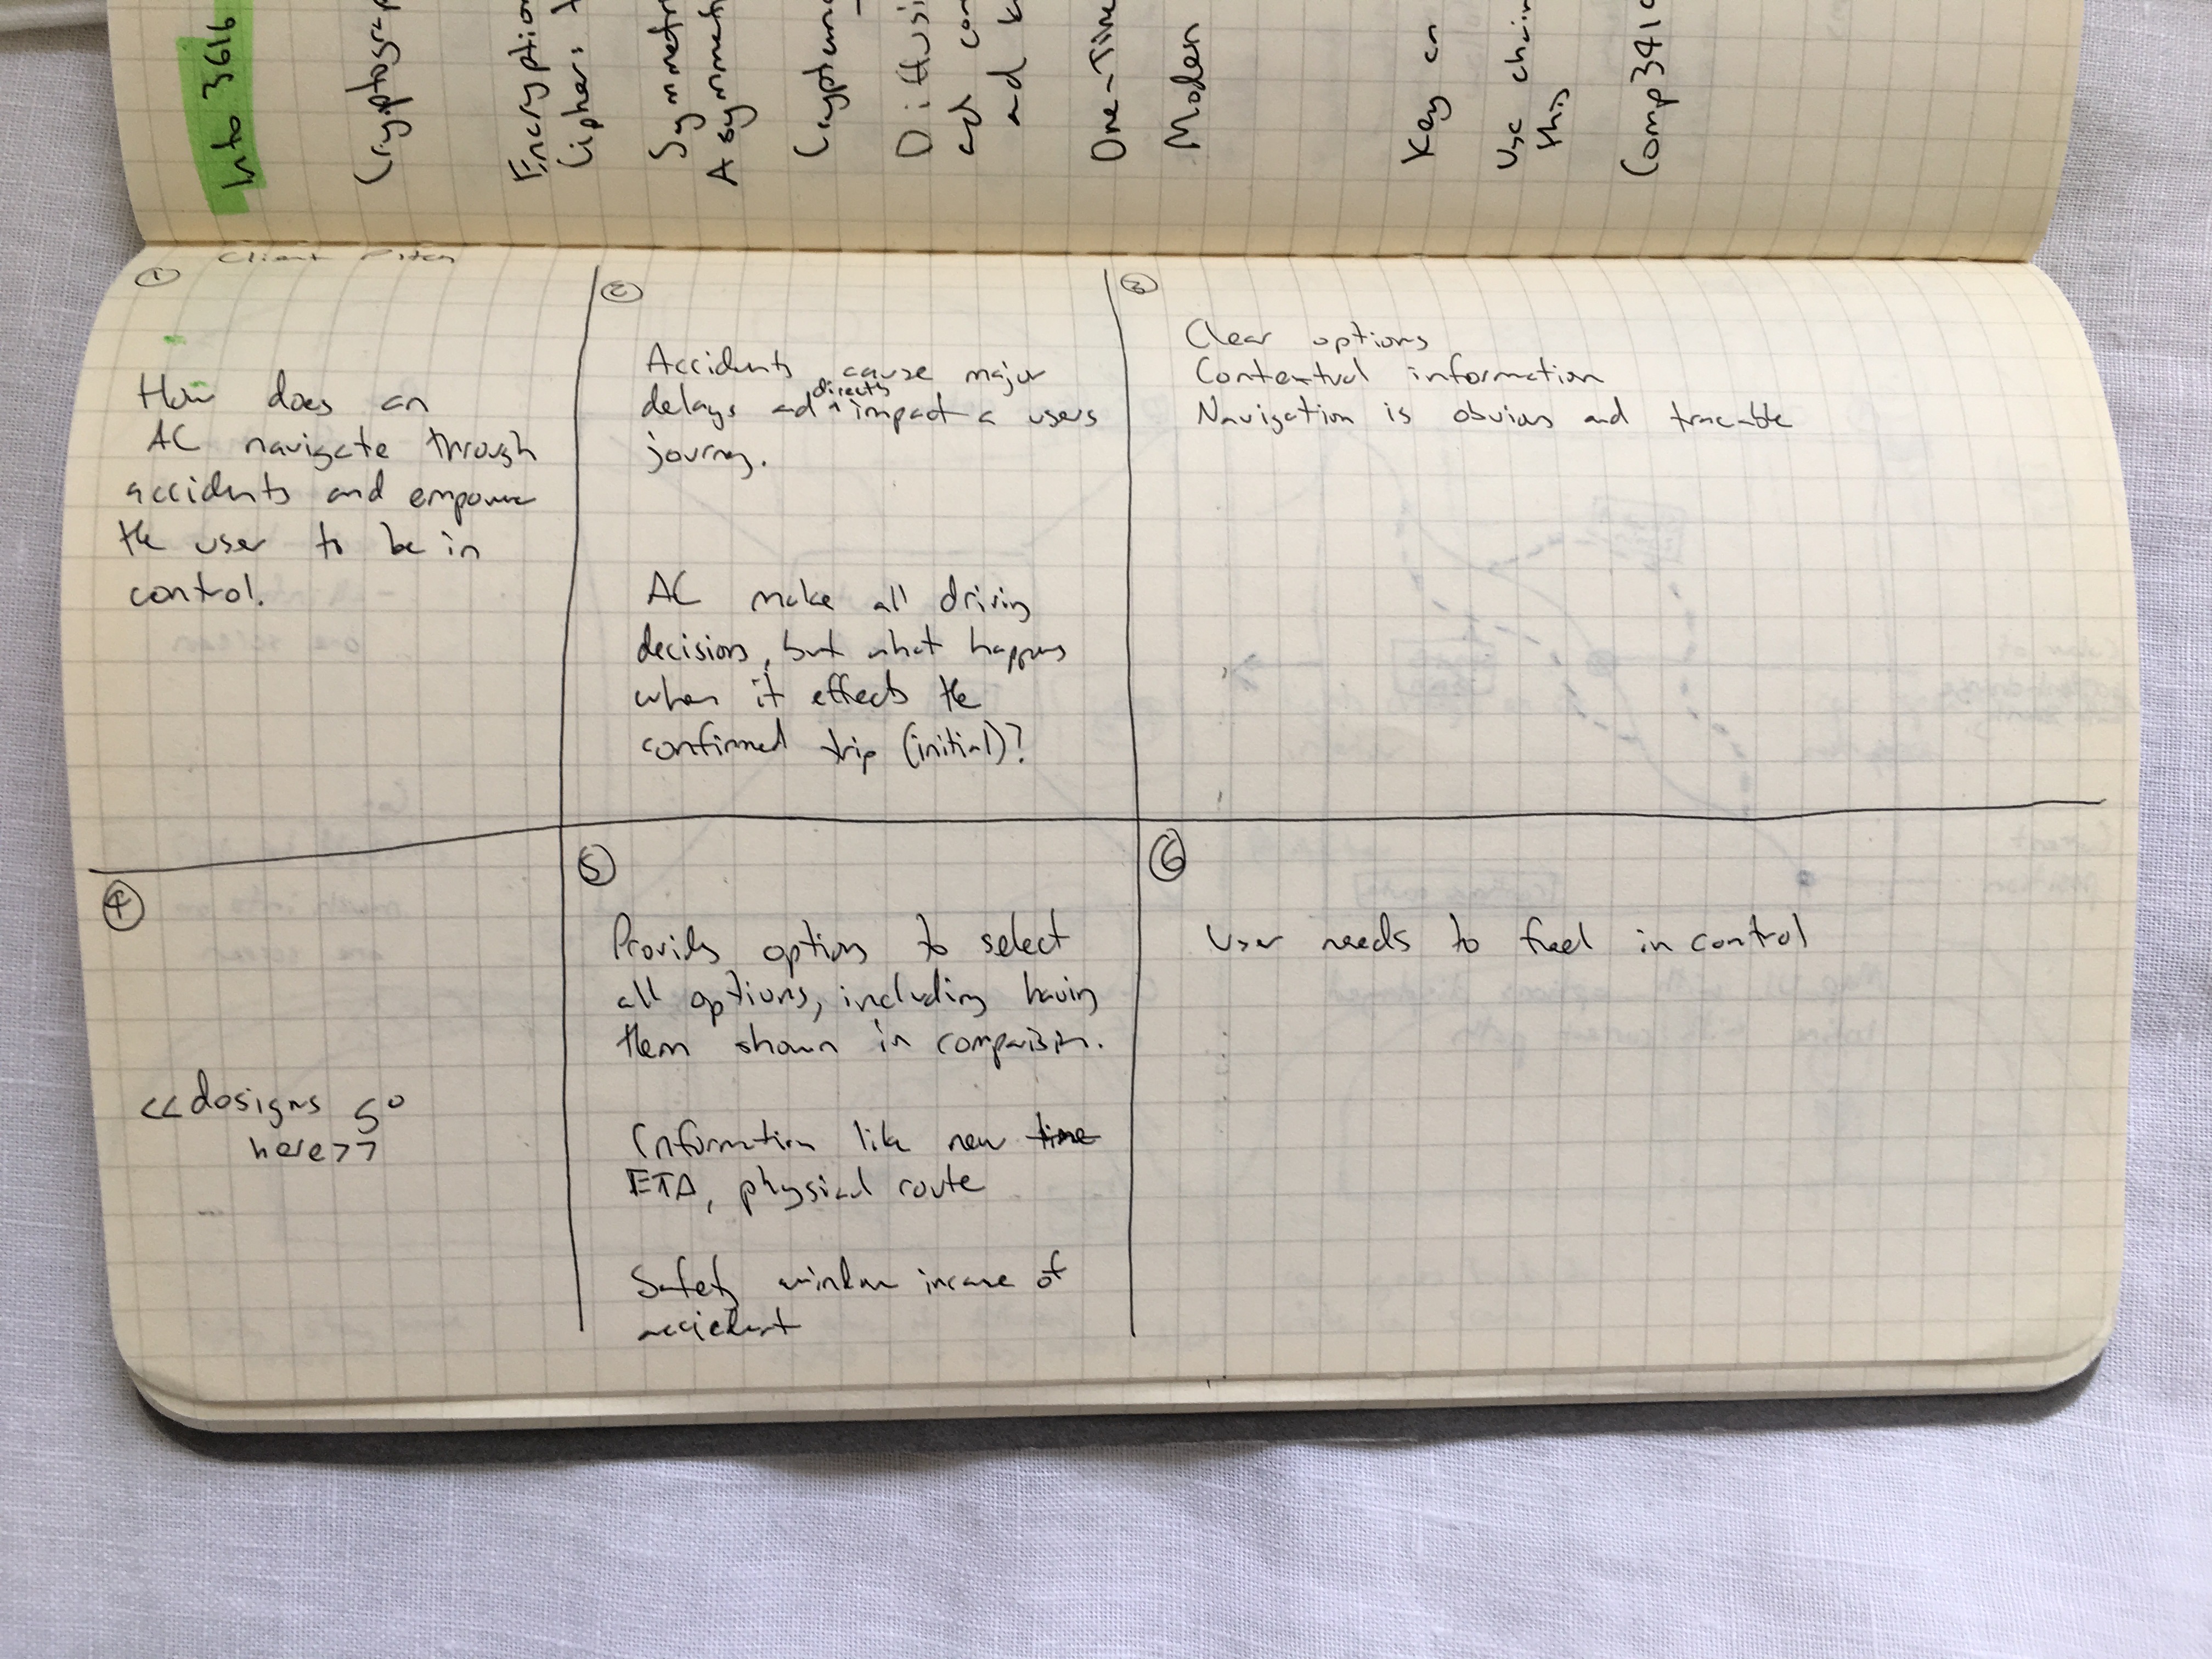 Info 3616
Cryptograp
Encryption
Ciphers
Symmetri
Asymmetri
Cryptana
Diffusi
and con
and k
One-Time
Modern
Key an
Use chain
this
Comp3419
Client Pitch
①
How does an
AC navigate through
accidents and empower
the user to be in
control.
②
Accidents cause major
directly
delays and ^ impact a users
journey.
AC make all driving
decisions, but what happens
when it effects the
confirmed trip (initial)?
③
Clear options
Contextual information
Navigation is obvious and traceable
④
<<designs go
here>>
⑤
Provides options to select
all options, including having
them shown in comparison.
Information like new time
ETA, physical route
Safety window incase of
accident
⑥
User needs to feel in control